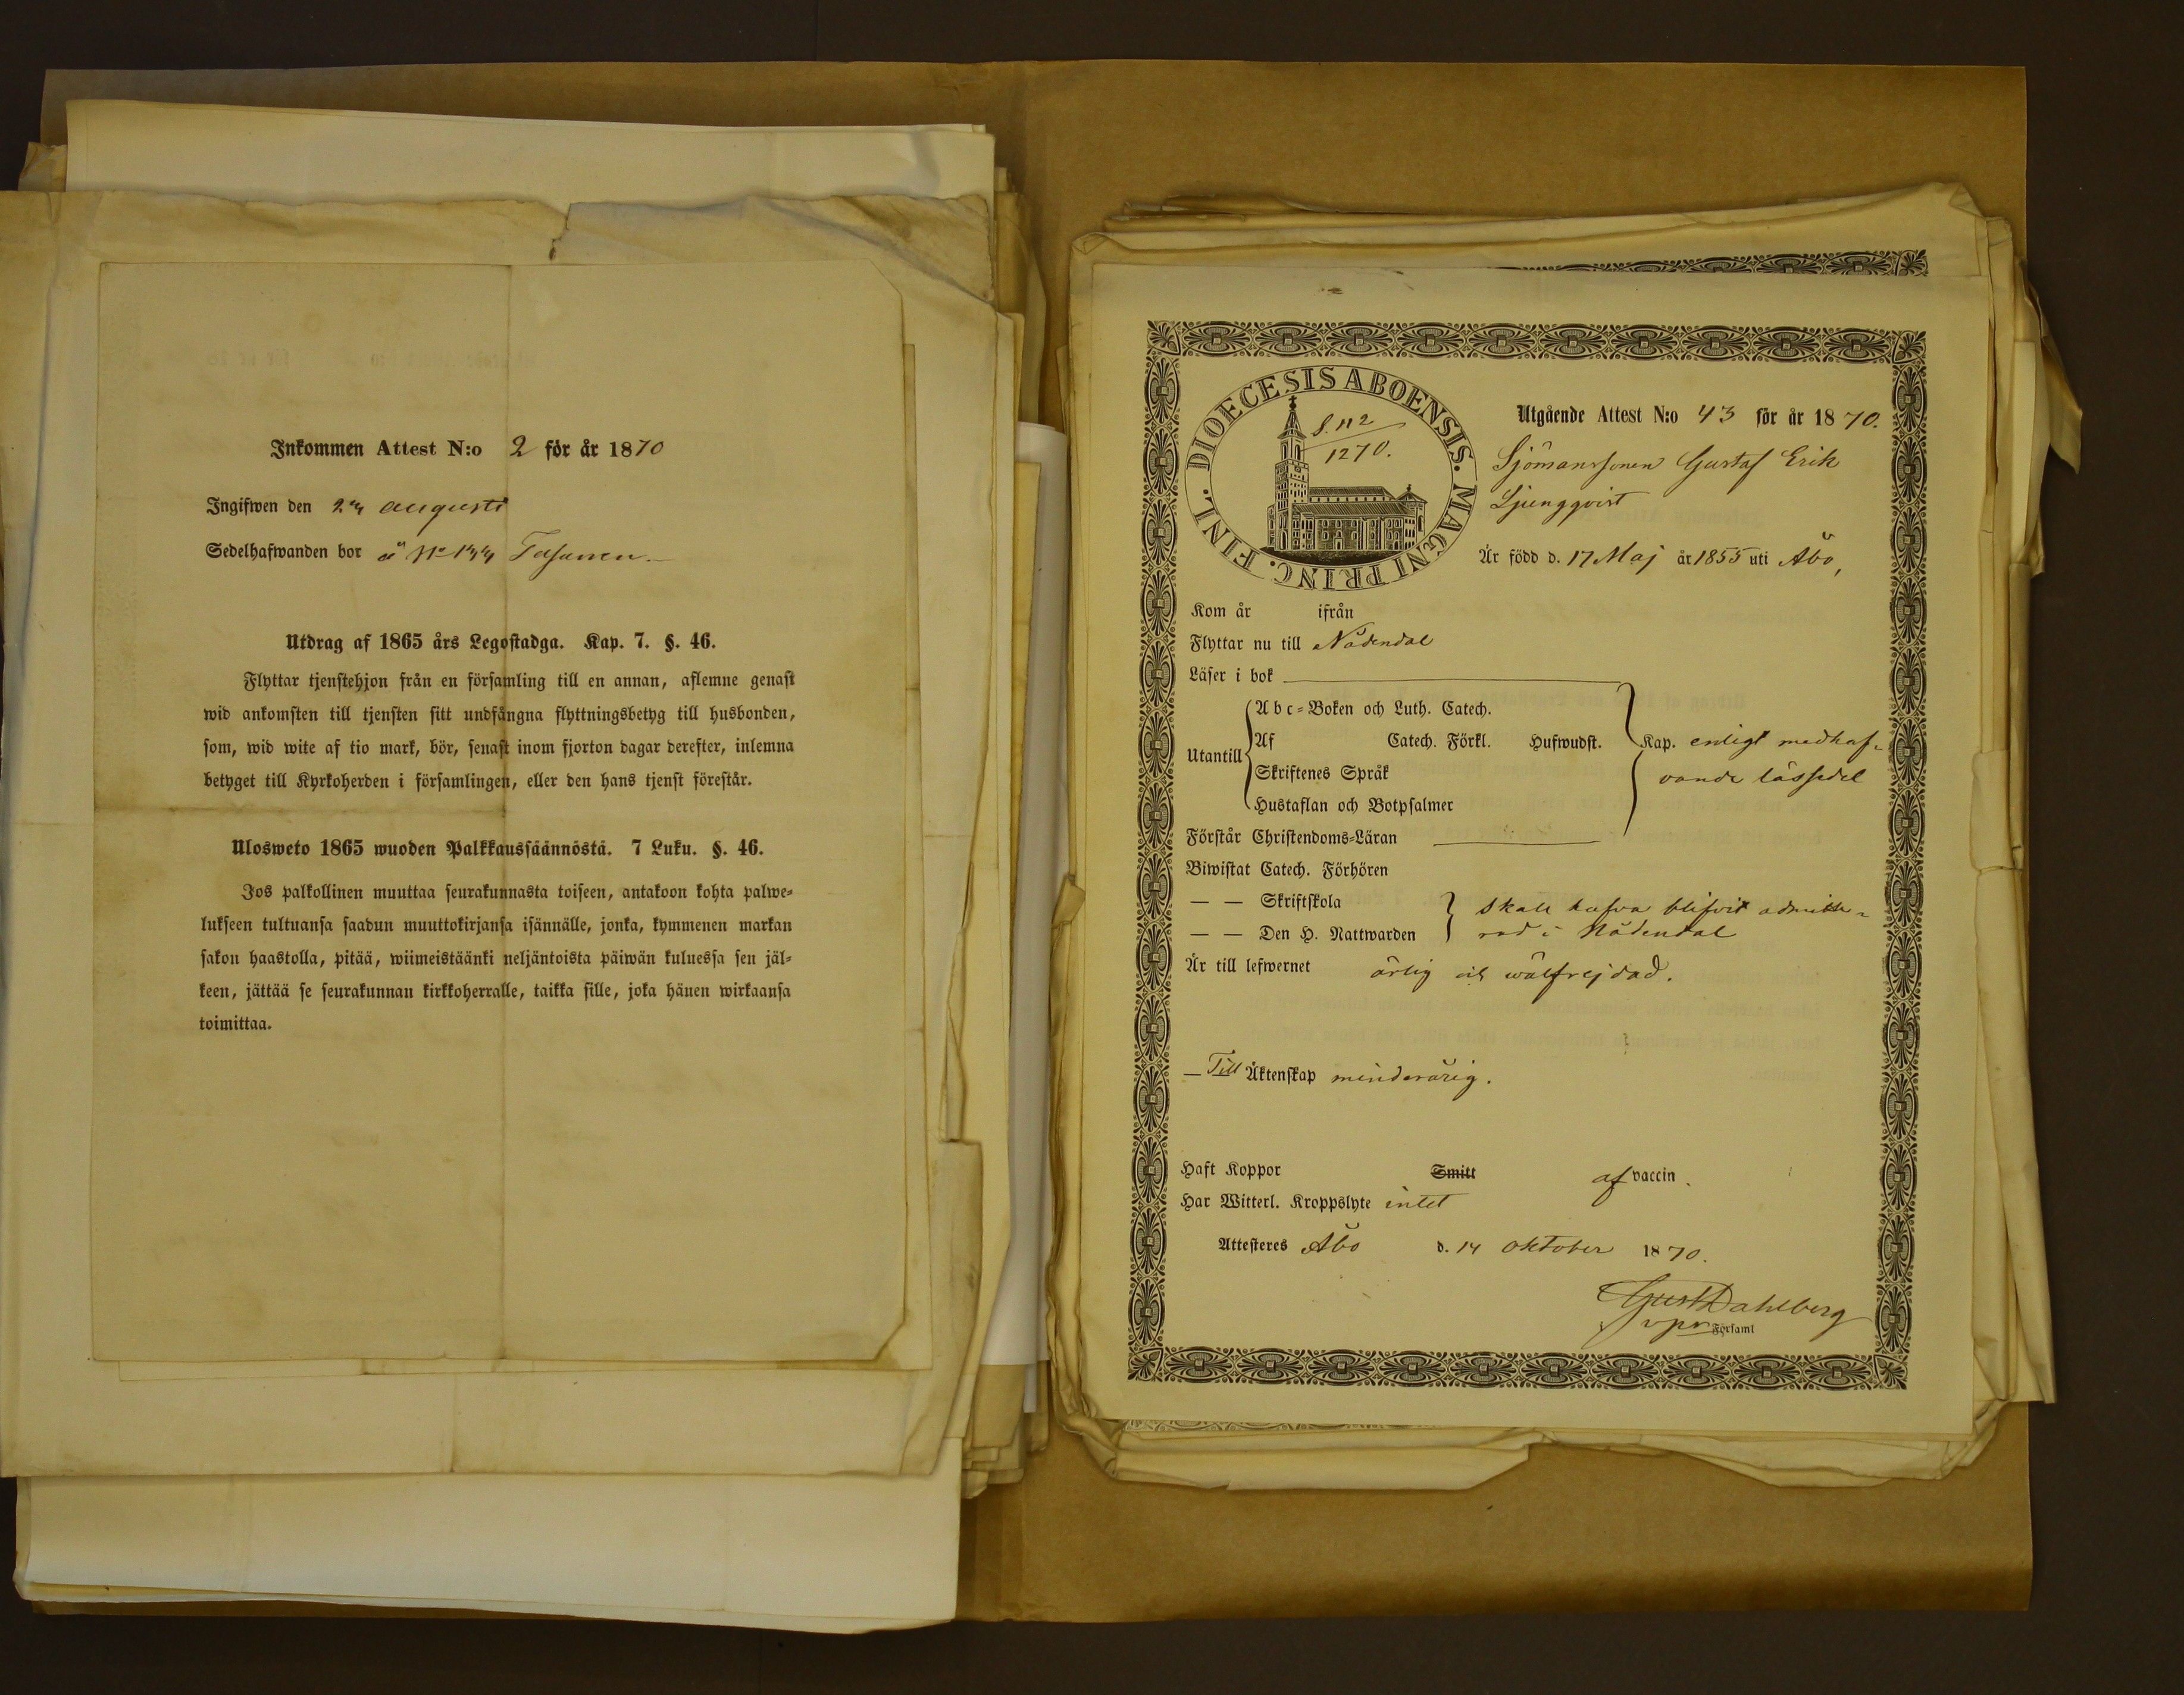 Inkommen Attest N:o 2 för år 1870
Ingifwen den augusti
Sedelhafwanden bor å No
Utdrag af 1865 års Legostadga. Kap. 7. §. 46.
Flyttar tjenstehjon från en församling till en annan, aflemne genast
wid ankomsten till tjensten sitt undfångna flyttningsbetyg till husbonden,
som, wid wite af tio mark, bör, senast inom fjorton dagar derefter, inlemna
betyget till Kyrkoherden i församlingen, eller den hans tjenst förestår.
Ulosweto 1865 wuoden Palkkaussäännöstä. 7 Luku. §. 46.
Jos palkollinen muuttaa seurakunnasta toiseen, antakoon kohta palwe-
lukseen tultuansa saadun muuttokirjansa isännälle, jonka, kymmenen markan
sakon haastolla, pitää, wiimeistäänki neljäntoista päiwän kuluessa sen jäl-
keen, jättää se seurakunnan kirkkoherralle, taikka sille, joka hänen wirkaansa
toimittaa.
DIOECESIS ABOENSIS. MAGNI PRINC. FINL.
S. 112
1270.
Utgående Attest N:o 43 för år 1870.
Sjömanssonen Gustaf Erik
Ljungqvist
Är född d. 17 Maj år 1855 uti Åbo,
Kom år ifrån
Flyttar nu till Nådendal
Läser i bok
Utantill
Abc-Boken och Luth. Catech.
Af Catech. Förkl. Hufwudst. Kap. enligt medhaf-
Skriftenes Språk vande lässedel
Hustaflan och Botpsalmer
Förstår Christendoms-Läran
Biwistat Catech. Förhören
— — Skriftskola skall hafva blifvit admitte-
— — Den H. Nattwarden rad i Nådendal
Är till lefwernet ärlig och wälfrejdad.
— Till Äktenskap minderårig.
Haft Koppor Smitt af vaccin.
Har Witterl. Kroppslyte intet
Attesteres Åbo d. 14 Oktober 1870.
Gust Dahlberg
vpr Församl